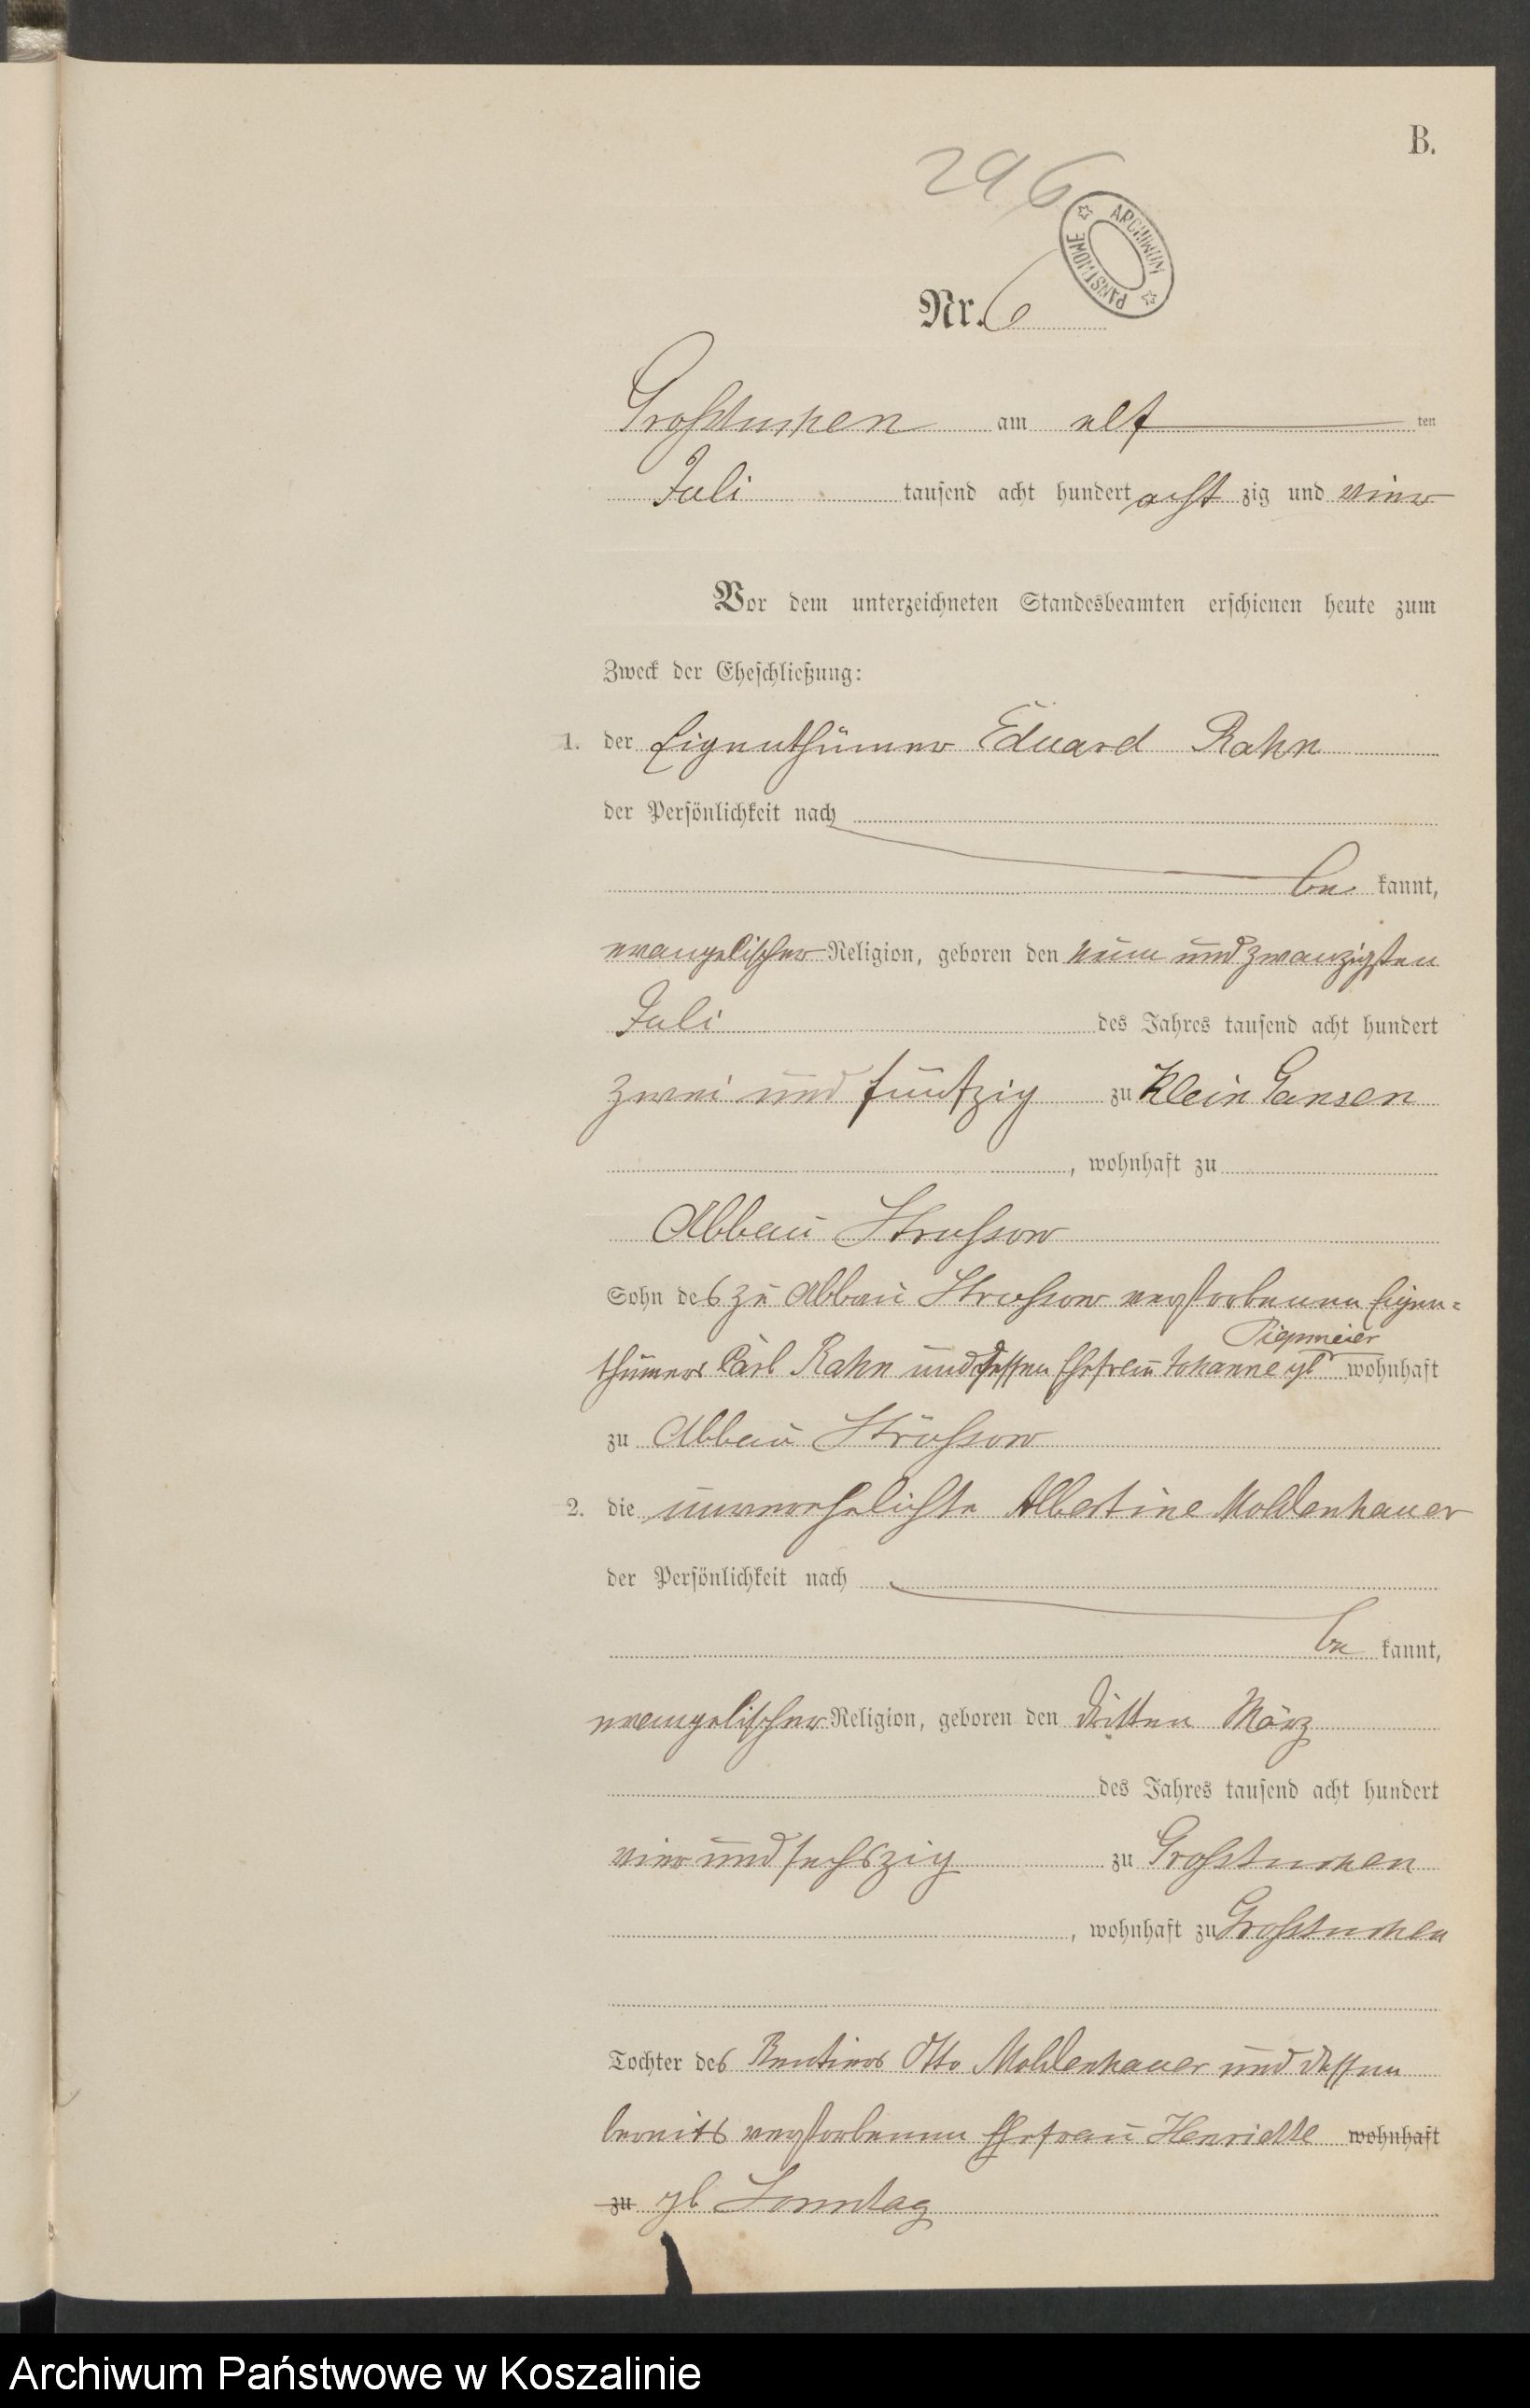 B.
296
ARCHIWUM PAŃSTWOWE
Nr. 6
Großtuchen am elf ten
Juli tausend acht hundert acht zig und vier
Vor dem unterzeichneten Standesbeamten erschienen heute zum
Zweck der Eheschließung:
1. der Eigenthümer Eduard Rahn
der Persönlichkeit nach
be kannt,
evangelischer Religion, geboren den neun und zwanzigsten
Juli des Jahres tausend acht hundert
zwei und fünfzig zu Klein Gansen
, wohnhaft zu
Abbau Strussow
Sohn des zu Abbau Strussow verstorbenen Eigen=
Piepmeier
thümers Carl Rahn und dessen Ehefrau Johanne gb wohnhaft
zu Abbau Strussow
2. die unverehelichte Albertine Moldenhauer
der Persönlichkeit nach
be kannt,
evangelischer Religion, geboren den dritten März
des Jahres tausend acht hundert
vier und sechszig zu Großtuchen
, wohnhaft zu Großtuchen
Tochter des Rentiers Otto Moldenhauer und dessen
bereits verstorbenen Ehefrau Henriette wohnhaft
zu gb Sonntag
Archiwum Państwowe w Koszalinie